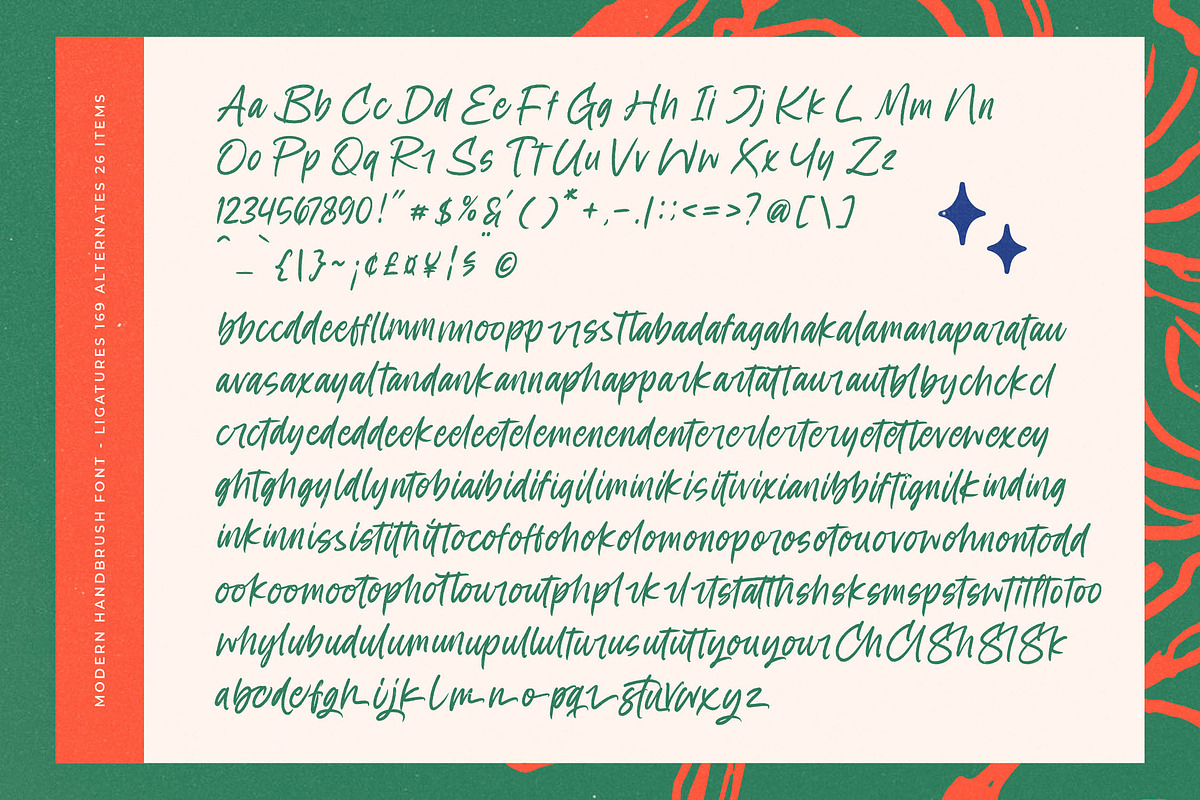 MODERN HANDBRUSH FONT - LIGATURES 169 ALTERNATES 26 ITEMS
Aa Bb Cc Dd Ee Ff Gg Hh Ii Jj Kk L Mm Nn
Oo Pp Qq Rr Ss Tt Uu Vv Ww Xx Yy Zz
1234567890!" # $ % & ' ( ) * + , - . / : ; < = > ? @ [ \ ]
^ _ ` { | } ~ ¡ ¢ £ ¤ ¥ ¦ § ¨ ©
bbccddeeffllmmnnoopprrssttabadafagahakalamanaparatau
avasaxayaltandankannaphapparkartattaurautblbychckcl
crctdyededdeekeeleetelemenendentererlerteryetettevewexey
ghtghgyldlyntobiaibidifigiliminikisitivixianibbiftignilkinding
inkinnississtithittocofoffohokolomonoporosotouovowohnontodd
ookoomootophottouroutphplrkrlrtstatthshsksmspstswtitltotoo
whylubudulumunupullulturusututtyouyour Ch Cl Sh Sl Sk
abcdefghijklmnopqrstuvwxyz